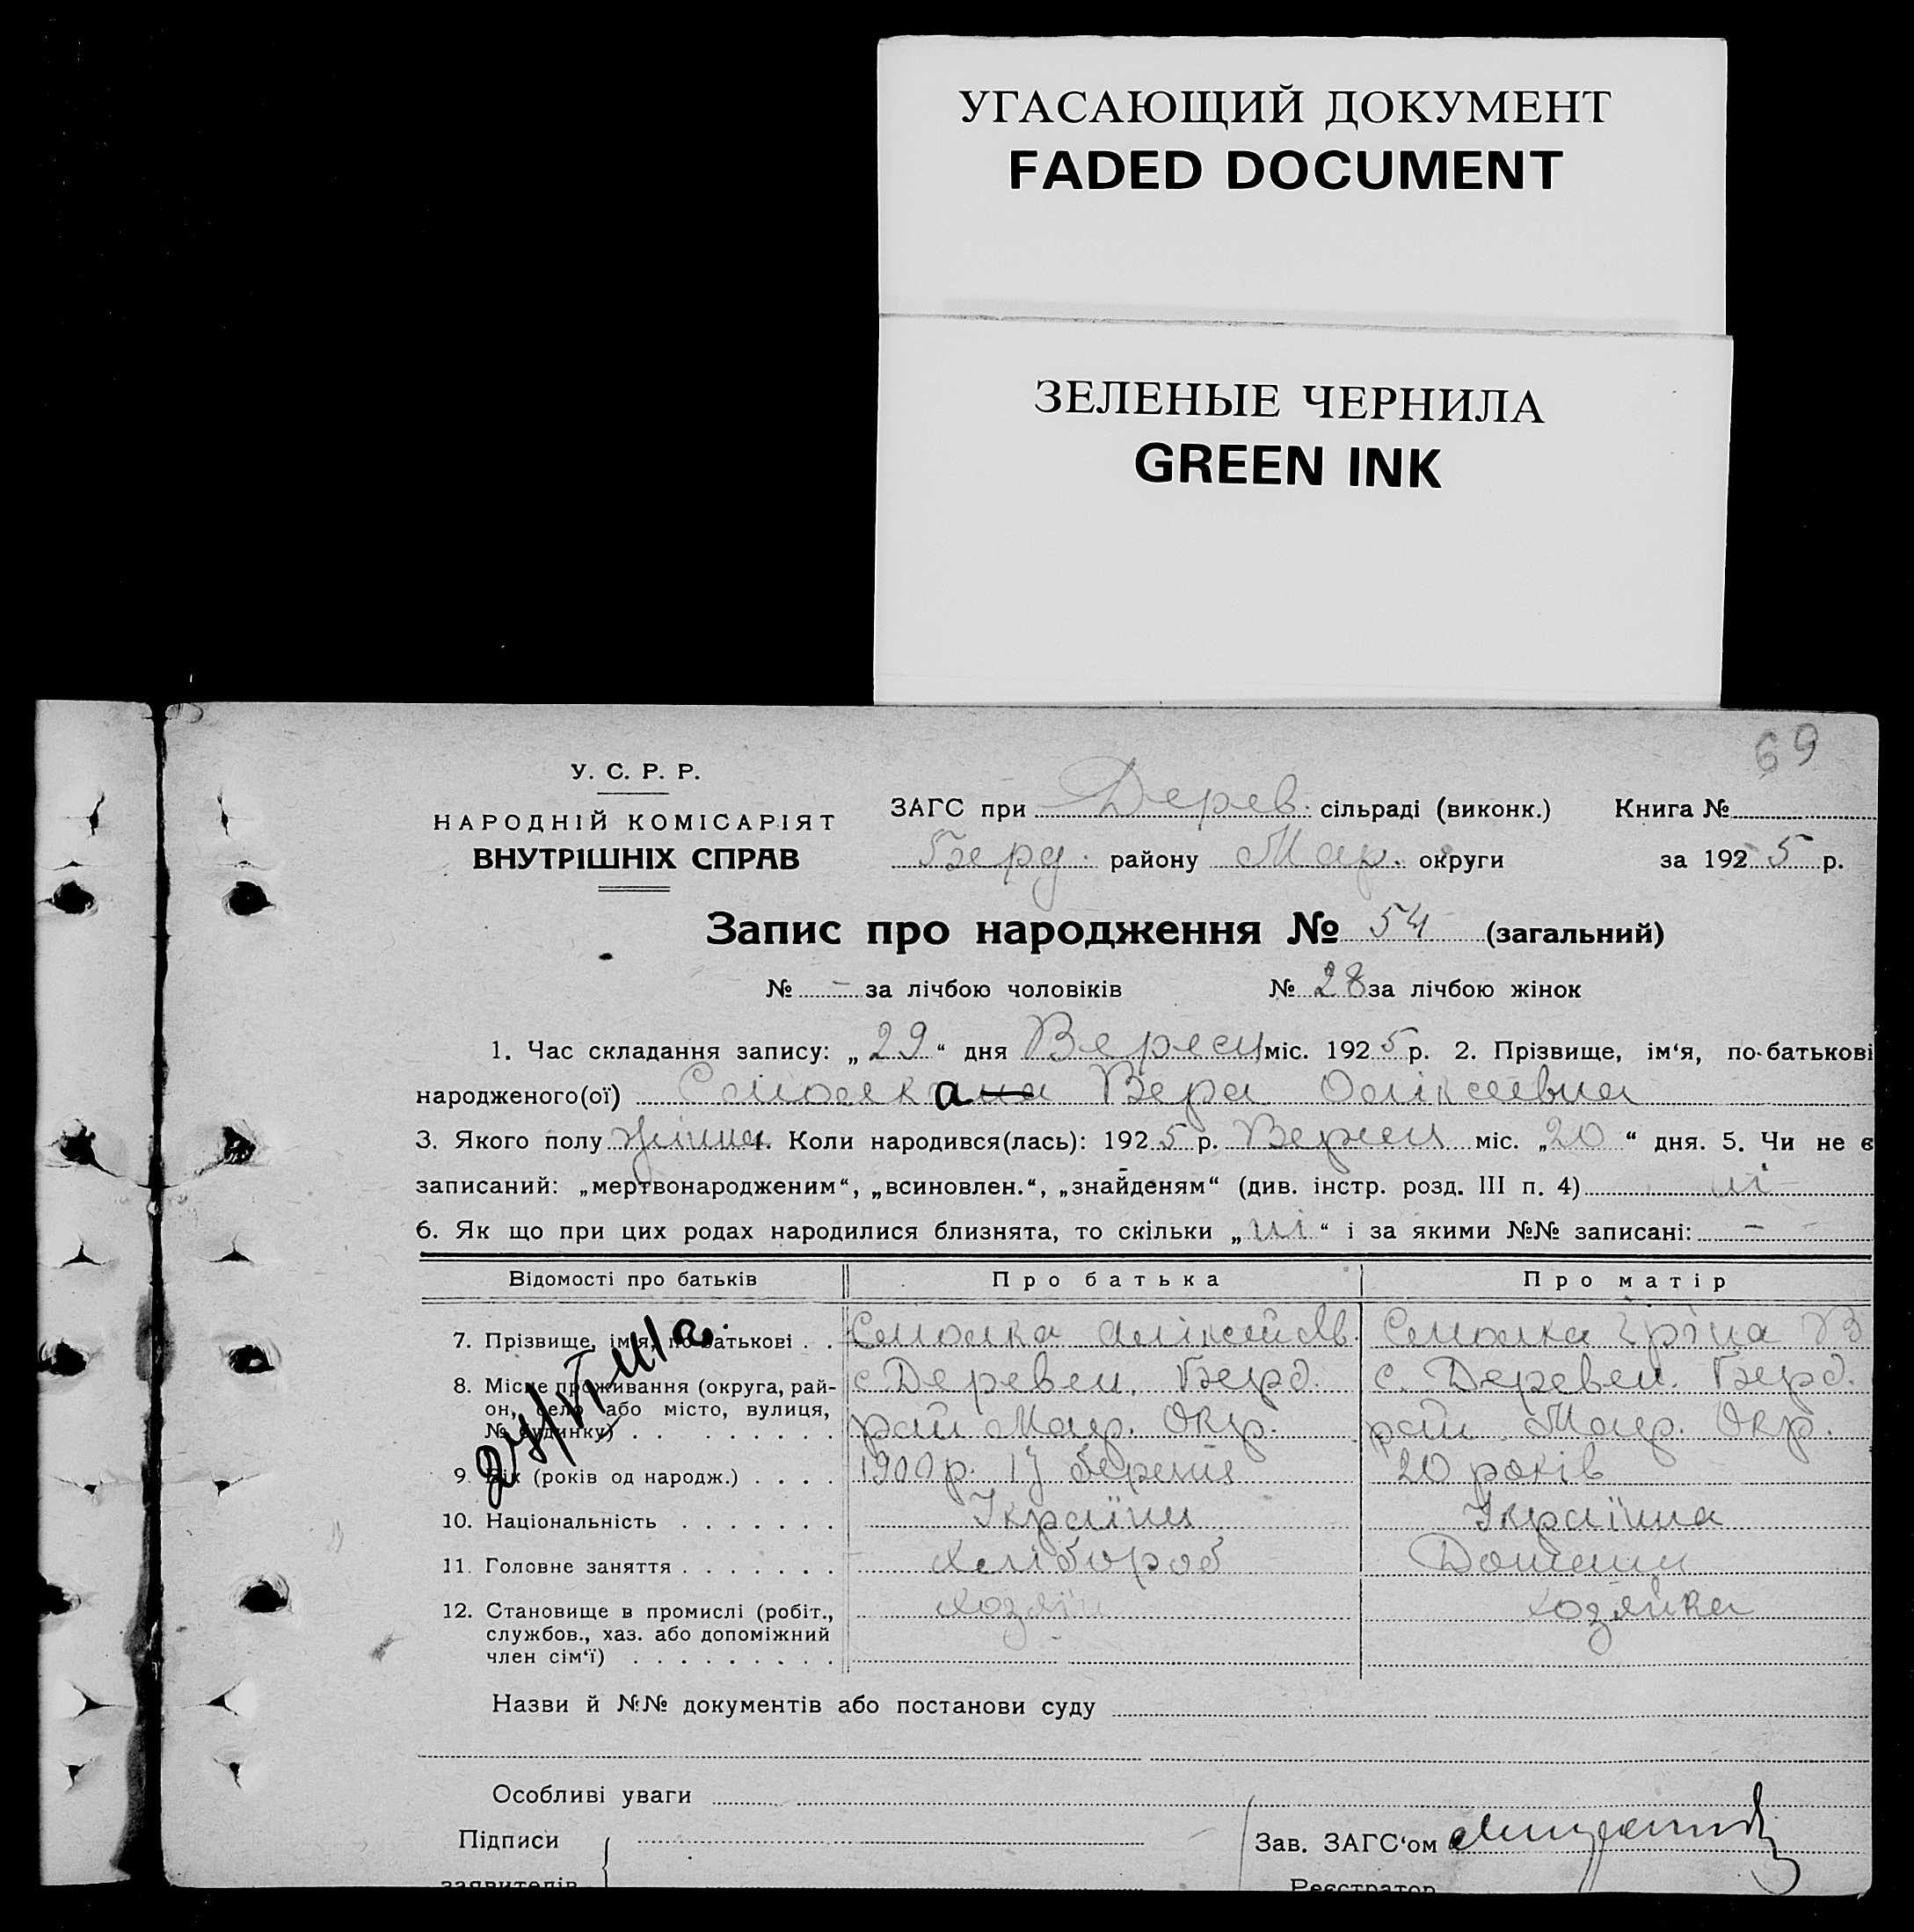 УГАСАЮЩИЙ ДОКУМЕНТ
FADED DOCUMENT
ЗЕЛЕНЫЕ ЧЕРНИЛА
GREEN INK
69
У. С. Р. Р.
НАРОДНІЙ КОМІСАРІЯТ
ВНУТРІШНІХ СПРАВ
ЗАГС при Дерев. сільраді (виконк.) Книга №
Берд. району Мар. округи за 1925 р.
Запис про народження № 54 (загальний)
№ - за лічбою чоловіків № 28 за лічбою жінок
1. Час складання запису: „29“ дня Вересн міс. 1925 р. 2. Прізвище, ім‘я, по-батькові
народженого(ої) Вера Оліксеівна
3. Якого полу жінка 4. Коли народився(лась): 1925 р. Вересн міс. „20“ дня. 5. Чи не є
записаний: „мертвонародженим“, „всиновлен.“, „знайденям“ (див. інстр. розд. III п. 4) ні
6. Як що при цих родах народилися близнята, то скільки „ні“ і за якими №№ записані: - -
Відомості про батьків Про батька Про матір
7. Прізвище, ім‘я, по-батькові . .
8. Місце проживання (округа, рай- с. Деревен. Берд. с. Деревен. Берд.
он, село або місто, вулиця,
№ будинку) . . . . . . . . рай. Мар. Окр. рай. Мар. Окр.
9. Вік (років од народж.) . . . . 1900 р. 17 березня 20 років
10. Національність . . . . . . . Україн Україна
11. Головне заняття . . . . . . . Хлібороб Домашн
12. Становище в промислі (робіт., хозяїн хозяйка
службов., хаз. або допоміжний
член сім‘ї) . . . . . . . . .
Назви й №№ документів або постанови суду
Особливі уваги
Підписи Зав. ЗАГС‘ом
заявителів Реєстратор